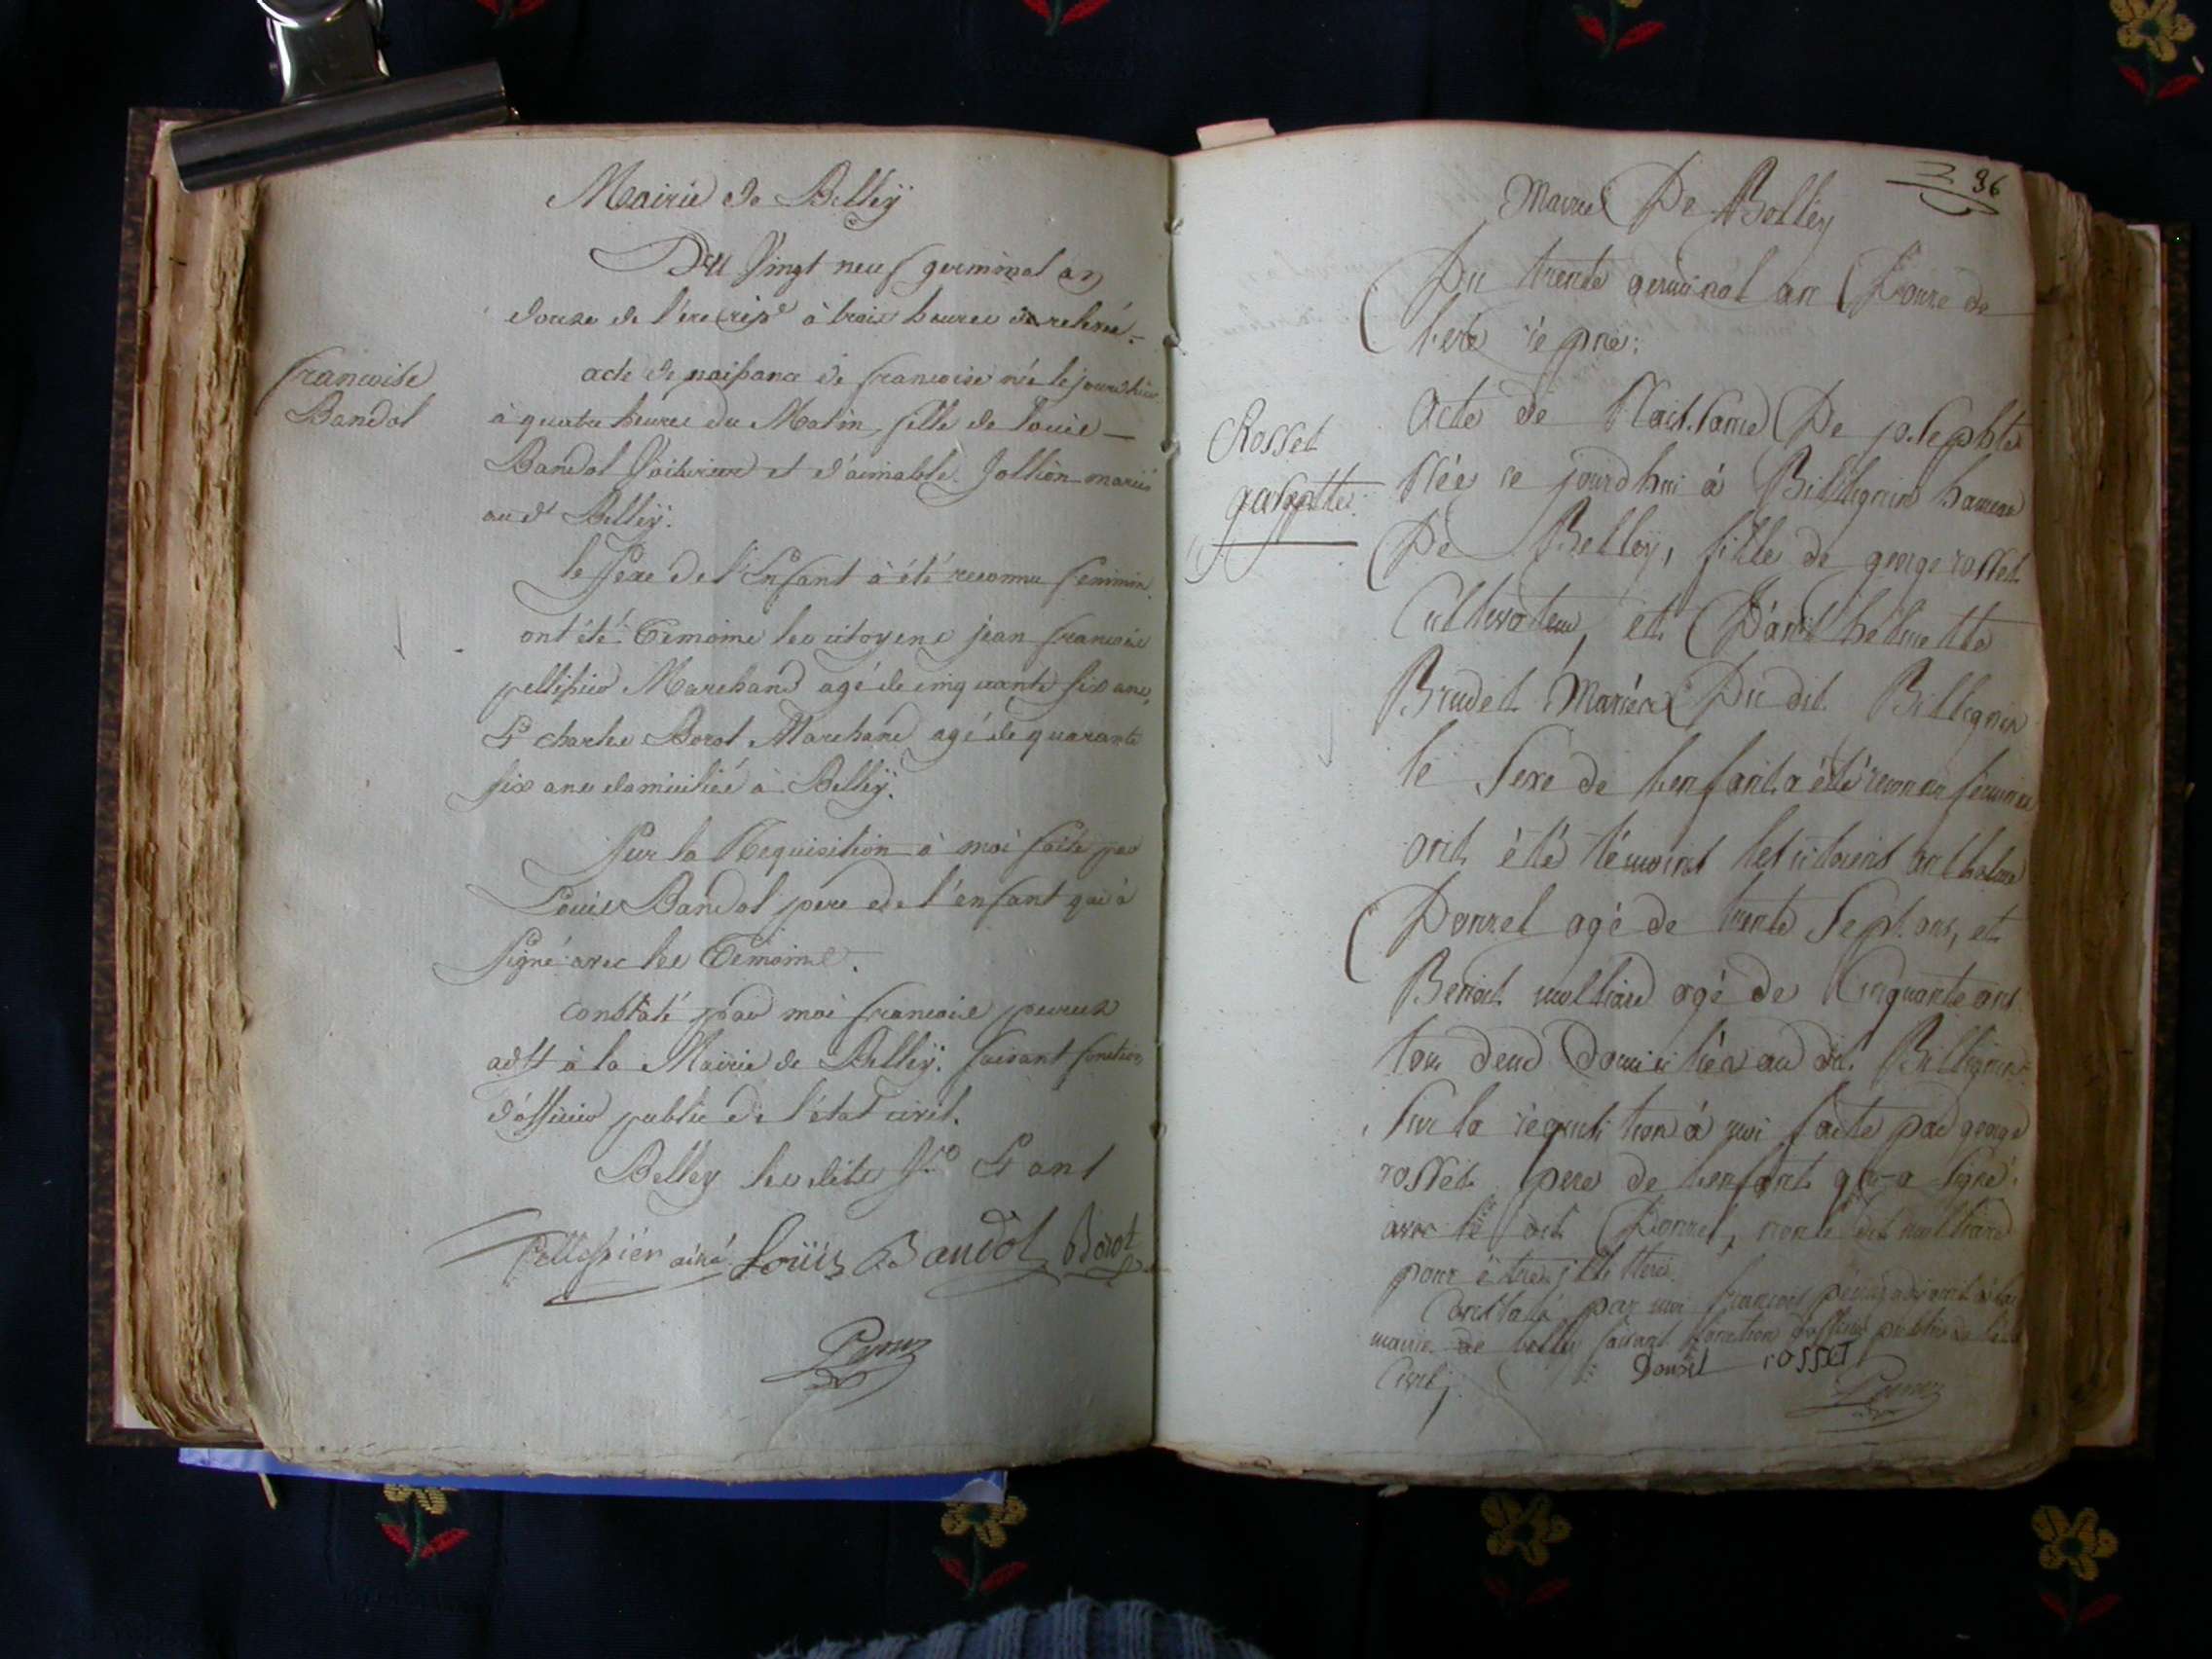 Mairie de Belleÿ
Du Vingt neuf germinal an
douze de l'ère rép.e à trois heures de relevée.
françoise
Bandol
acte de naissance de françoise née le jourdhui
à quatre heures du Matin, fille de louis
Bandol Voiturier et d'aimable Jollion mariés
au dt Belleÿ.
le sexe de l'Enfant à été reconnu feminin.
ont été Temoins les citoyens jean françois
pellissier Marchand agé de cinquante six ans,
Et charles Borot Marchand agé de quarante
six ans domiciliés à Belleÿ.
Sur la Requisition à moi faite par
Louis Bandol pere de l'enfant qui à
signé avec les Témoins.
constaté par moi françois peyruz
adjt à la Mairie de Belleÿ. faisant fonction
d'officier public de l'état civil.
Belley les dits Jr Et ant
Pellissiér ainé Loüis Bandol Borot
Peyruz
96
Mairie De Belleÿ
Du trente germinal an Douze de
l'ere rép.ne:
Rosset
josephte
Acte de Naissance De josephte
Née ce jourdhui à Billegnin hameau
De Belleÿ, fille de george rosset
Cultivateur, et D'anthelmette
Brudet Mariés Du dit Billignin
le sexe de lenfant a été reconnu féminin
ont été témoins les citoiens anthelme
Donzel agé de trente sept ans, et
Benoit molliard agé de Cinquante ans
tou deux Domiciliés au dit Billignin
Sur la requisition à moi faite par george
rosset pere de lenfant qui a signé
avec le dit Donzel, non le dit molliard
pour être illittere.
Constaté par moi françois peyruz adjoint à la
mairie de belley faisant fonction d'officier public de létat
Civil;
Donzel rosset
Peyruz